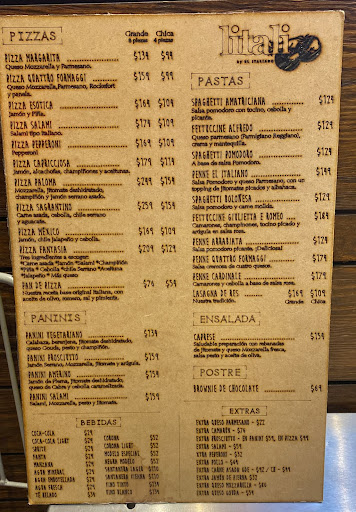 PIZZAS
Grande
8 piezas
Chica
4 piezas
PIZZA MARGARITA $134 $94
Queso Mozzarella y Parmesano.
PIZZA QUATTRO FORMAGGI $159 $99
Queso Mozzarella, Parmesano, Rockefort
y panela.
PIZZA ESOTICA $169 $109
Jamón y Piña.
PIZZA SALAMI $179 $109
Salami tipo italiano.
PIZZA PEPPERONI $169 $109
Pepperoni
PIZZA CAPRICCIOSA $179 $114
Jamón, alcachofas, champiñones y aceitunas.
PIZZA PALOMA $244 $154
Mozzarella, jitomate deshidratado,
champiñón y jamón serrano asado.
PIZZA SAGRANTINO $254 $154
Carne asada, cebolla, chile serrano
y aguacate.
PIZZA MÉXICO $169 $109
Jamón, chile jalapeño y cebolla.
PIZZA FANTASIA $204 $129
Tres ingredientes a escoger:
*Carne asada *Jamón *Salami *Champiñón
*Piña *Cebolla *Chile Serrano *Aceituna
*Jalapeño *Más queso
PAN DE PIZZA $76 $54
Nuestra receta base original italiana, con
aceite de olivo, romero, sal y pimienta.
PANINIS
PANINI VEGETARIANO $134
Calabaza, berenjena, jitomate deshidratado,
queso Gouda, pesto y champiñón.
PANINI PROSCIUTTO $154
Jamón Serrano, Mozzarella, jitomate y arúgula.
PANINI AMERINO $154
Jamón de Pierna, jitomate deshidratado,
queso de Cabra y cebolla caramelizada.
PANINI SALAMI $154
Salami, Mozzarella, pesto y jitomate.
BEBIDAS
COCA-COLA $29
COCA-COLA LIGHT $29
SPRITE $29
FANTA $29
MANZANA $29
AGUA MINERAL
AGUA EMBOTELLADA
AGUA FRESCA
TÉ HELADO
CORONA
CORONA LIGHT
MODELO ESPECIAL
NEGRA MODELO
VINO TINTO
VINO BLANCO
litali
by EL ITALIANO
PASTAS
SPAGHETTI AMATRICIANA $129
Salsa pomodoro con tocino, cebolla y
picante.
FETTUCCINE ALFREDO $129
Queso parmesano (Parmigiano Reggiano),
crema y mantequilla.
SPAGHETTI POMODORO $124
A base de salsa Pomodoro.
PENNE EL ITALIANO $149
Salsa Pomodoro y queso Parmesano, con un
topping de jitomate picado y albahaca.
SPAGHETTI BOLOÑESA $129
Salsa pomodoro y carne molida.
FETTUCCINE GIULIETTA E ROMEO $169
Camarones, champiñones, tocino picado y
arúgula en salsa rosa.
PENNE ARRABIATA $124
Salsa pomodoro picante. ¡Deliciosa!
PENNE QUATTRO FORMAGGI $179
Salsa cremosa de cuatro quesos.
PENNE CARDINALE $179
Camarones y cebolla a base de salsa rosa.
LASAGNA DE RES $169 $109
Nuestra tradición.
Grande Chica
ENSALADA
CAPRESE $154
Saludable preparación con rebanadas
de jitomate y queso Mozzarella fresca,
salsa pesto y aceite de oliva.
POSTRE
BROWNIE DE CHOCOLATE $64
EXTRAS
EXTRA QUESO PARMESANO - $22
EXTRA CAMARÓN - $74
EXTRA PROSCIUTTO - EN PANINI $54, EN PIZZA $94
EXTRA SALAMI - $54
EXTRA PEPERONI
EXTRA POLLO
EXTRA CARNE ASADA
EXTRA JAMÓN DE PIERNA
EXTRA QUESO MOZZARELLA
EXTRA QUESO CABRA